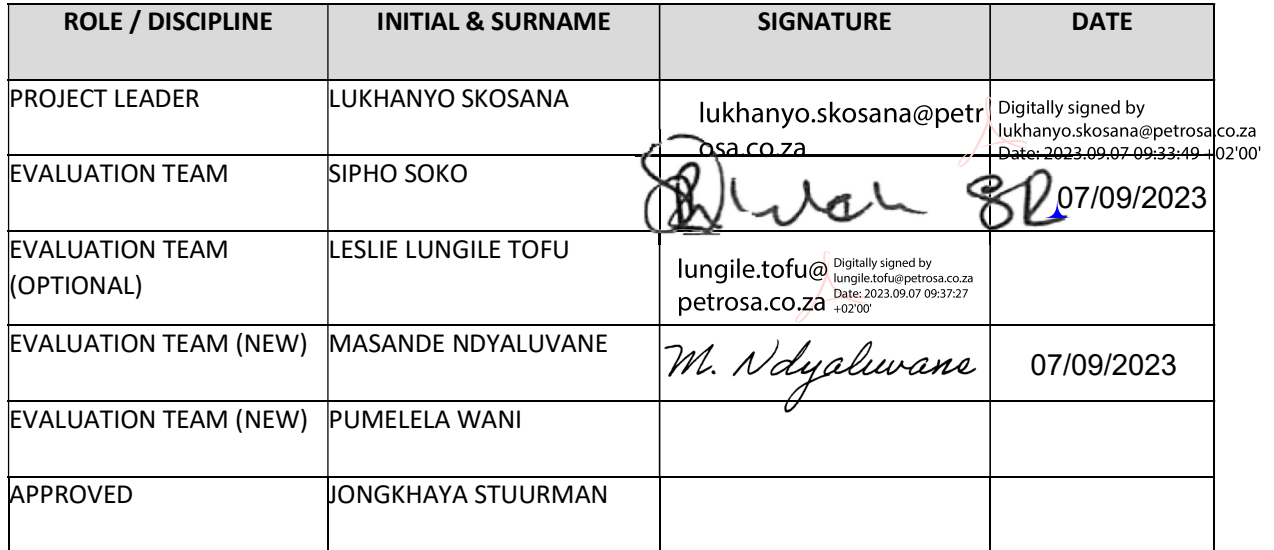 ROLE / DISCIPLINE INITIAL & SURNAME SIGNATURE DATE
PROJECT LEADER LUKHANYO SKOSANA
lukhanyo.skosana@petr
osa.co.za
Digitally signed by
lukhanyo.skosana@petrosa.co.za
Date: 2023.09.07 09:33:49 +02'00'
EVALUATION TEAM SIPHO SOKO 07/09/2023
EVALUATION TEAM
(OPTIONAL)
LESLIE LUNGILE TOFU
lungile.tofu@
petrosa.co.za
Digitally signed by
lungile.tofu@petrosa.co.za
Date: 2023.09.07 09:37:27
+02'00'
EVALUATION TEAM (NEW) MASANDE NDYALUVANE M. Ndyaluvane 07/09/2023
EVALUATION TEAM (NEW) PUMELELA WANI
APPROVED JONGKHAYA STUURMAN